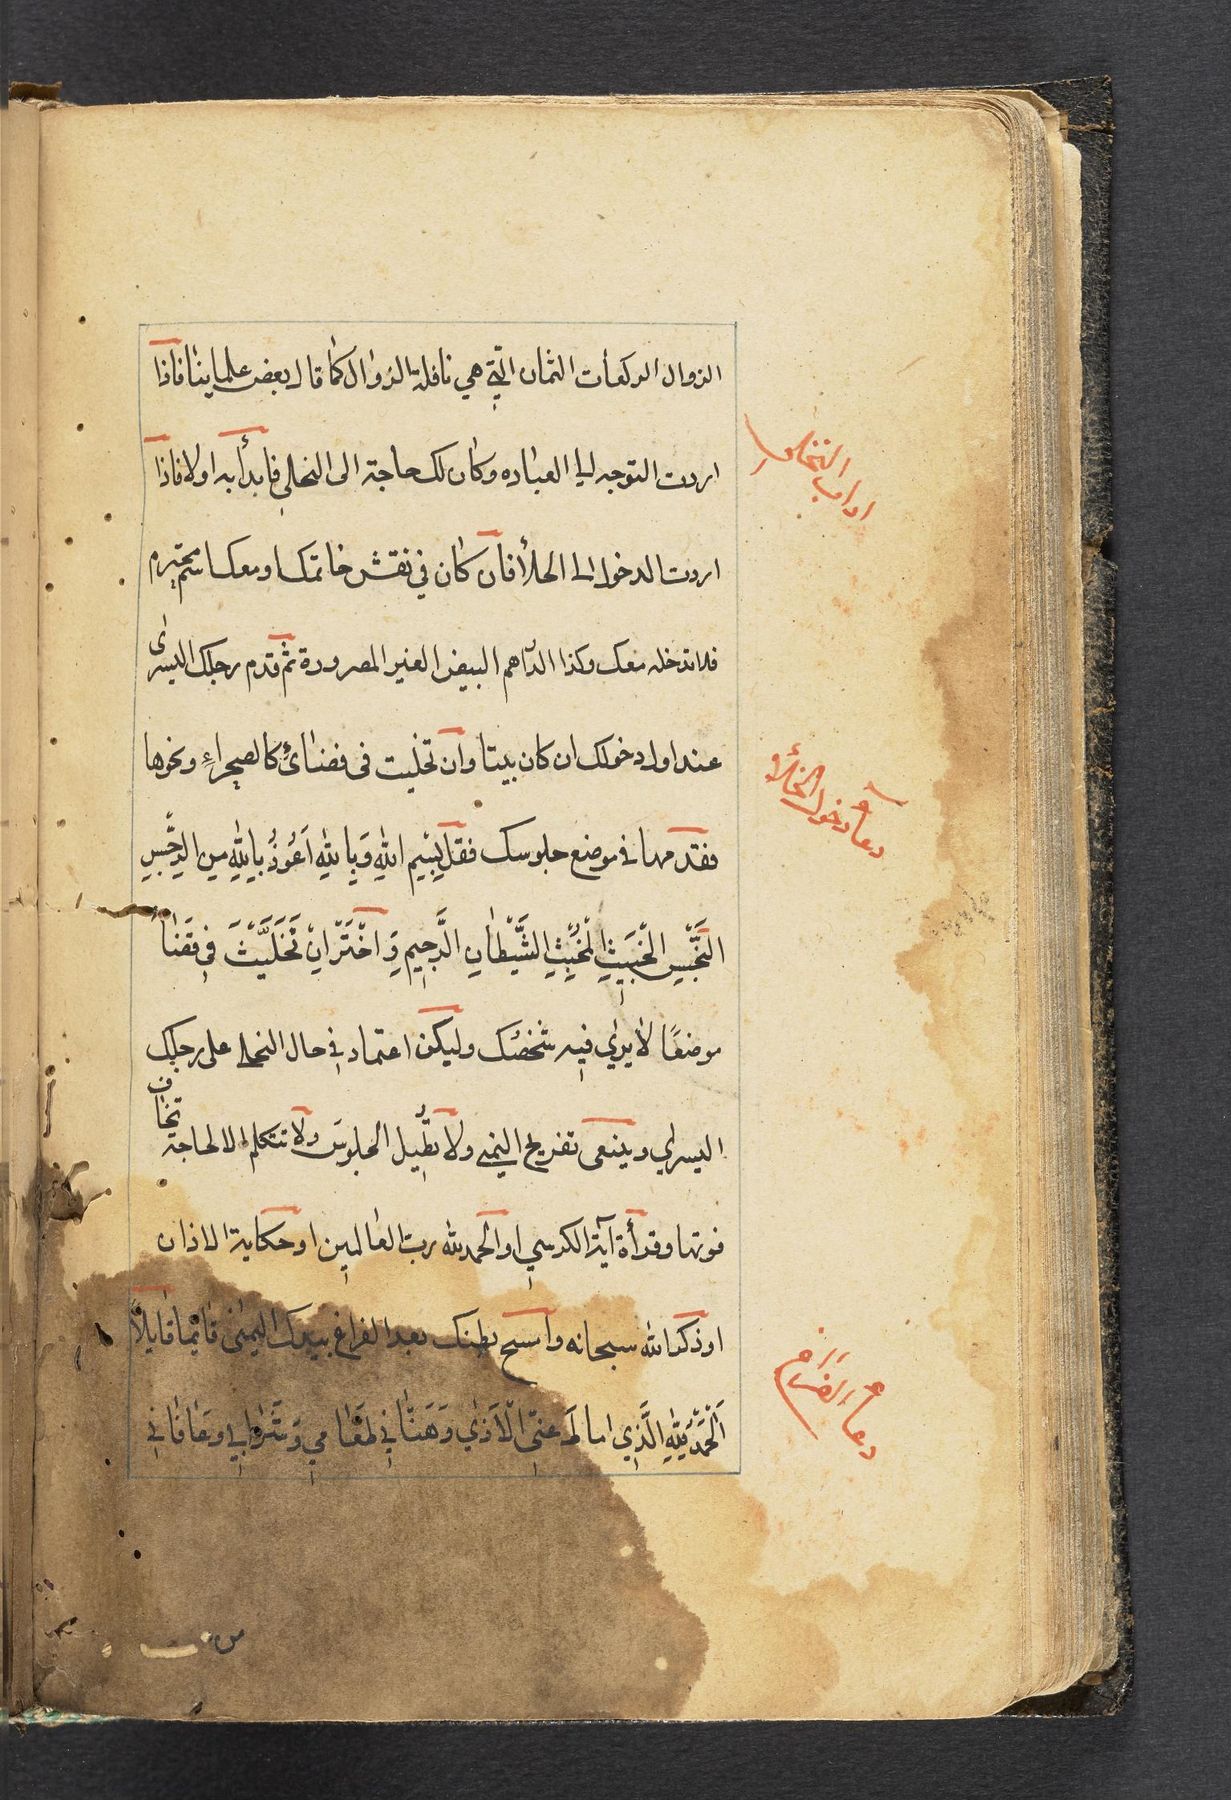 الزوال الركعات الثمان الّتي هي نافلة الزوال كما قال بعض علماينا فاذا
اردت التوجه الى العباده وكان لك حاجة الى التخلي فابدأ به اولا فاذا
اردت الدخول الى الخلأ فان كان في نقش خاتمك او معك اسم محترم
فلا تدخله معك وكذا الدّراهم البيض الغير المصرورة ثم قدم رجلك اليسرى
عند اول دخولك ان كان بيتا وان تخليت في فضائ كالصحراء ونحوها
فقدمها في موضع جلوسك فقل بِسْمِ اللهِ وَبِاللهِ اَعُوذُ بِاللهِ مِنَ الرِّجْسِ
النَّجِسِ الْخَبِيثِ الْمُخْبِثِ الشَّيْطانِ الرَّجِيمِ وَاخْتَرْ اِنْ تَخَلَّيْتَ فِي فَضاء
موضعًا لا يري فيه شخصك وليكن اعتماد في حال التخلي على رجلك
اليسري وينبغي تفريج اليمنى ولا تطيل الجلوس ولا تتكلم الا لحاجة تخاف
فوتها وقرأة آية الكرسي او الحمد لله ربّ العالمين او حكاية الاذان
او ذكر الله سبحانه وامسح بطنك بعد الفراغ بيدك اليمنى قائما قايلاً
اَلْحَمْدُ لِلّهِ الَّذِي اماطَ عَنِّي الْاَذٰي وَهَنّانِي طَعَامِي وَشَرابِي وعَافانِي
من
اداب التخلي
دعاء دخول الخلأ
دعاء